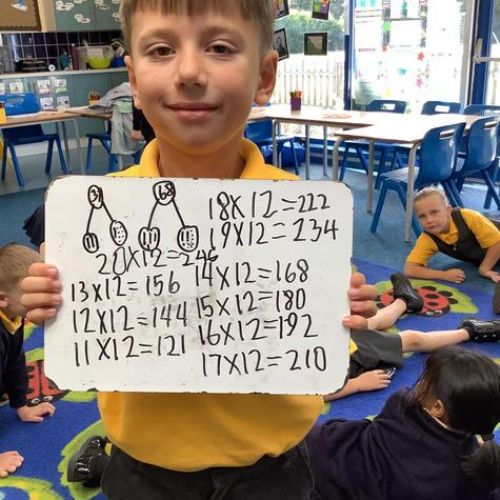 18x12=222
19x12=234
20x12=246
13x12=156
14x12=168
12x12=144
15x12=180
11x12=121
16x12=192
17x12=210